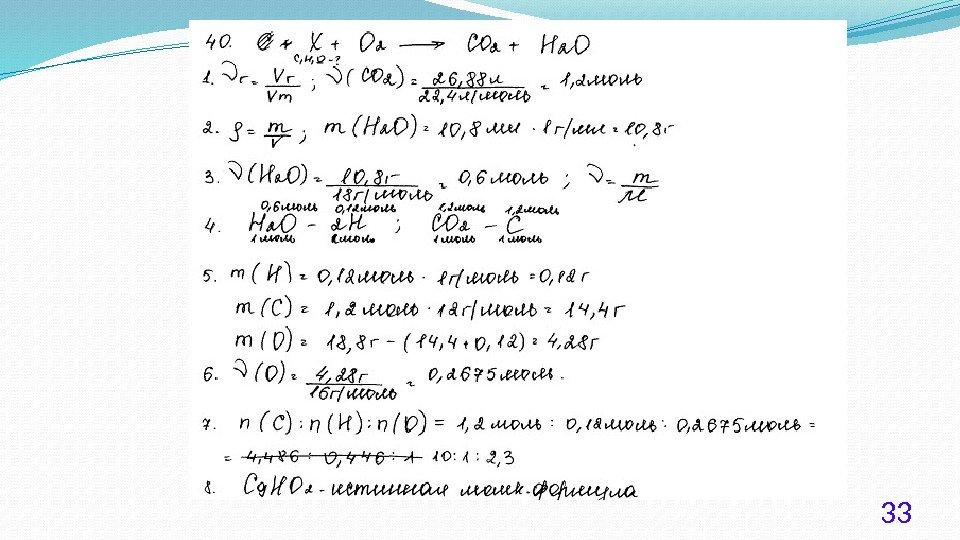 40. X + O2 → CO2 + H2O
C, H, O - ?
1. ν г = Vг / Vm ; ν(CO2) = 26,88л / 22,4л/моль = 1,2моль
2. ρ = m / V ; m (H2O) = 10,8 мл · 1г/мл = 10,8г
3. ν(H2O) = 10,8г / 18г/моль = 0,6 моль ; ν = m / M
0,6моль 0,12моль 1,2моль 1,2моль
4. H2O - 2H ; CO2 - C
1моль 2моль 1моль 1моль
5. m (H) = 0,12моль · 1г/моль = 0,12 г
m (C) = 1,2моль · 12г/моль = 14,4г
m (O) = 18,8г - (14,4 + 0,12) = 4,28г
6. ν (O) = 4,28г / 16г/моль = 0,2675 моль.
7. n (C) : n (H) : n (O) = 1,2 моль : 0,12моль : 0,2675моль =
= 4,486 : 0,446 : 1 10 : 1 : 2,3
8. C9HO2 - истинная молек. формула
33